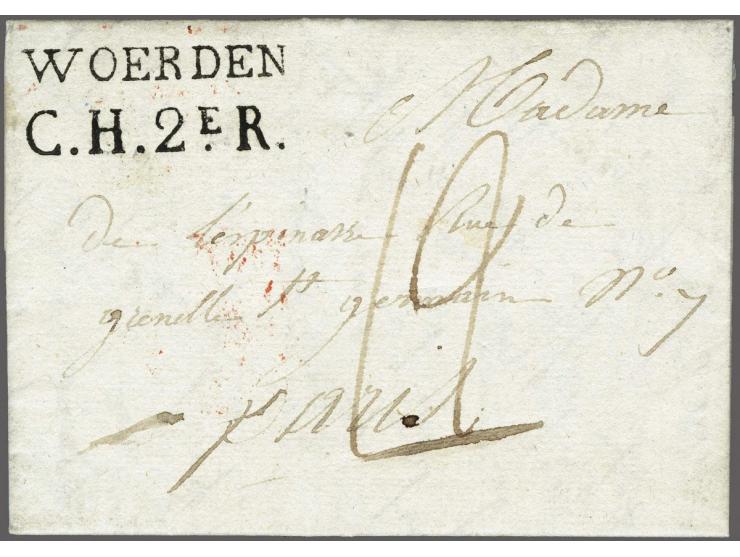 WOERDEN
C.H.2E.R.
Madame
de Lespinasse Rue de
grenelle St germain No. 7
paris